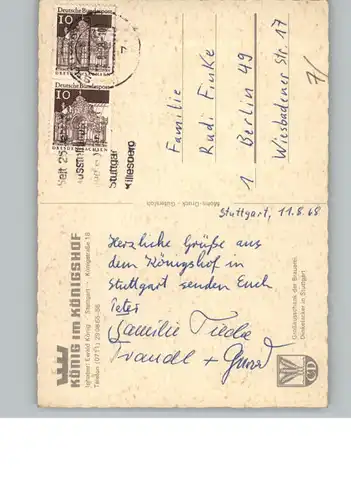 Deutsche Bundespost
10
DRESDEN SACHSEN
Deutsche Bundespost
10
DRESDEN SACHSEN
Stuttgart
Killesberg
Familie
Rudi Finke
1 Berlin 49
Wiesbadener Str. 17
7/
Stuttgart, 11.8.68
Herzliche Grüße aus
dem Königshof in
Stuttgart senden Euch
Peter
Familie Tiede
Traudl +
KÖNIG IM KÖNIGSHOF
Inhaber: Ewald König · Stuttgart – Königstraße 18
Großausschank der Brauerei
Dinkelacker in Stuttgart
CD